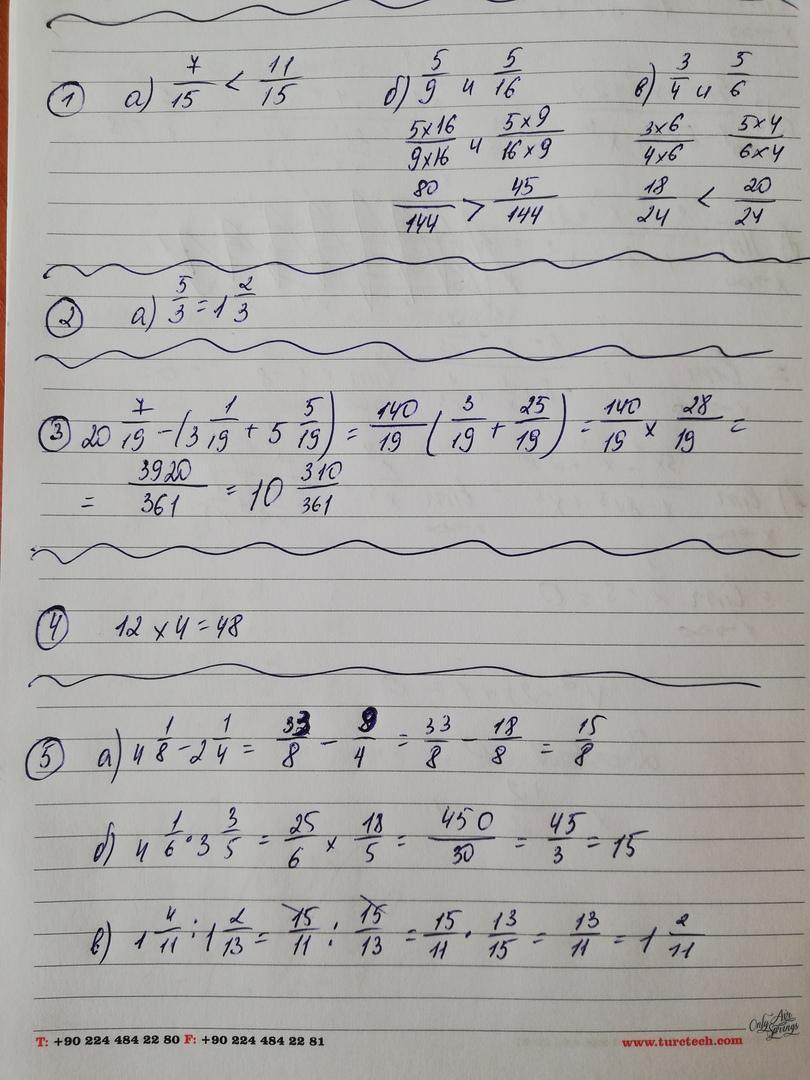 1 а) 7/15 < 11/15 б) 5/9 и 5/16 в) 3/4 и 5/6
5×16/9×16 и 5×9/16×9 3×6/4×6 5×4/6×4
80/144 > 45/144 18/24 < 20/24
2 а) 5/3 = 1 2/3
3 20 7/19 - (3 1/19 + 5 5/19) = 140/19 (3/19 + 25/19) = 140/19 × 28/19 =
= 3920/361 = 10 310/361
4 12 × 4 = 48
5 а) 4 1/8 - 2 1/4 = 33/8 - 9/4 = 33/8 - 18/8 = 15/8
б) 4 1/6 · 3 3/5 = 25/6 × 18/5 = 450/30 = 45/3 = 15
в) 1 4/11 : 1 2/13 = 15/11 : 15/13 = 15/11 · 13/15 = 13/11 = 1 2/11
Only Air Springs
T: +90 224 484 22 80 F: +90 224 484 22 81 www.turctech.com